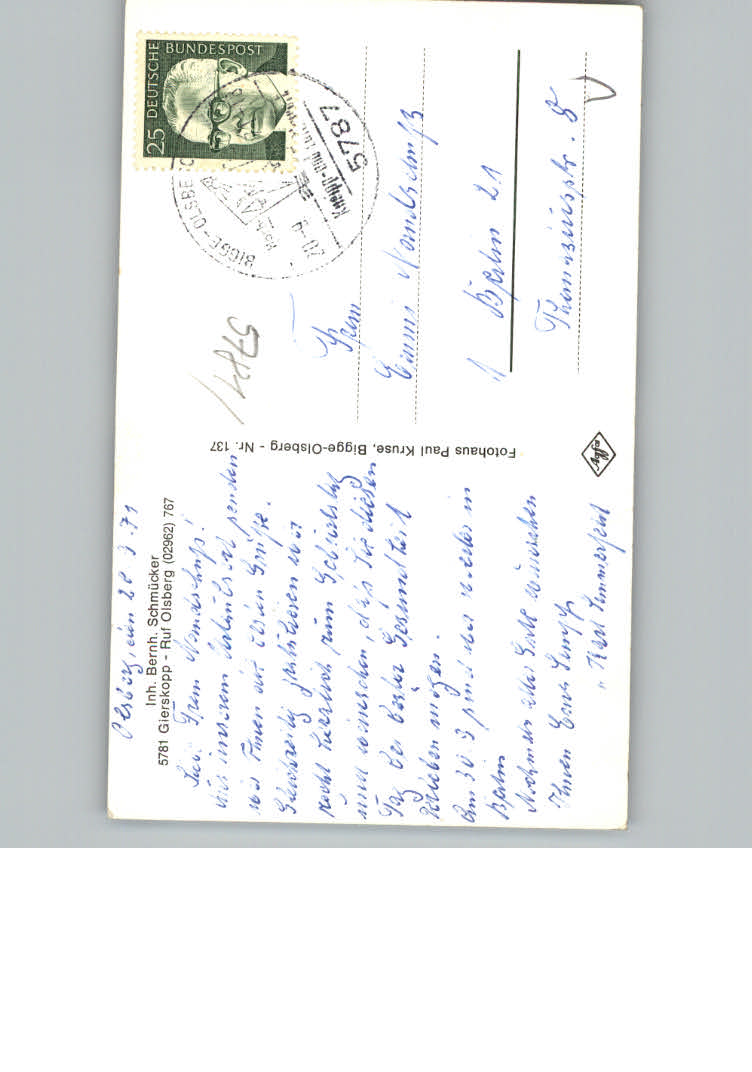 Inh. Bernh. Schmücker
5781 Gierskopp - Ruf Olsberg (02962) 767
Olsberg, den 20.9.71
Liebe Frau Nowdschuß!
Aus unserem Urlaubsort senden
wir Ihnen die besten Grüße.
Gleichzeitig gratulieren wir
recht herzlich zum Geburtstag
und wünschen, daß Sie diesen
Tag bei bester Gesundheit
erleben mögen.
Am 30.9 sind wir wieder in
Berlin
Nochmals alles Gute wünschen
Ihnen
Karl Sommerfeld
Fotohaus Paul Kruse, Bigge-Olsberg - Nr. 137
Agfa
25 DEUTSCHE BUNDESPOST
5787
BIGGE-OLSBERG
5787
Frau
1 Berlin 21
Thomasiusstr. 8